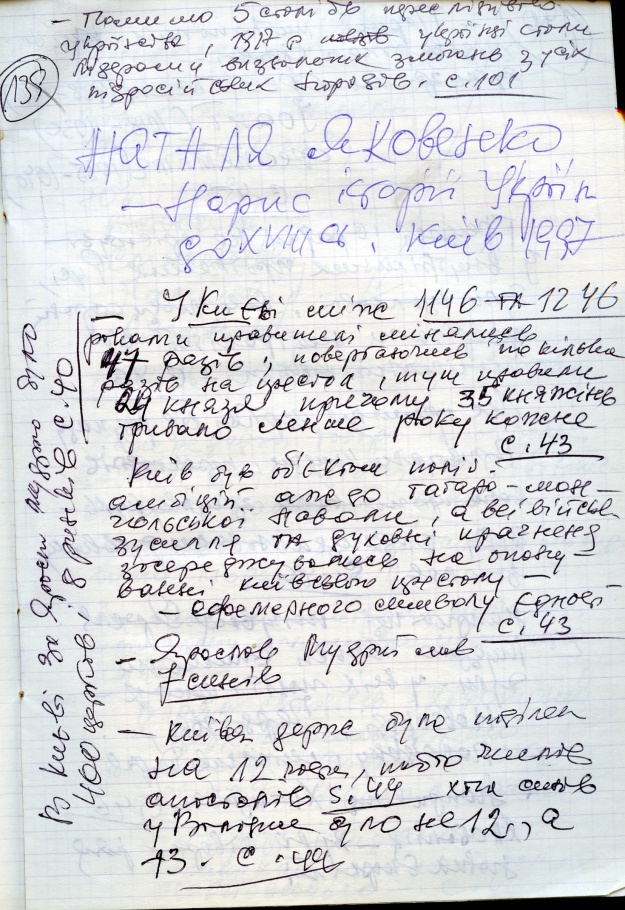 – Помимо 5 століть
українства, 1917 р українці стали
лідерами визвольних змагань з усіх
підросійських народів. с. 101
139
НАТАЛЯ ЯКОВЕНКО
– Нарис історії України
Київ 1997
– У Києві між 1146 та 1246
роками правителі мінялися
47 разів, повертаючись по кілька
разів на престол, тут правили
24 князя причому 35 княжінь
тривало менше року кожне
с. 43
Київ був об'єктом
амбіцій аж до татаро-мон-
гольської навали, а всі військ
зусилля та духовні прагнення
зосереджувались на опану-
ванні київського престолу –
– ефемерного символу єдності
с. 43
– Ярослав Мудрий мав
7 синів
– Київська держ була поділен
на 12
апостолів с. 44 хоча синів
у Володим було не 12, а
13. с. 44
В Києві за Яросл мудрого було
400 церков і 8 ринків с. 40